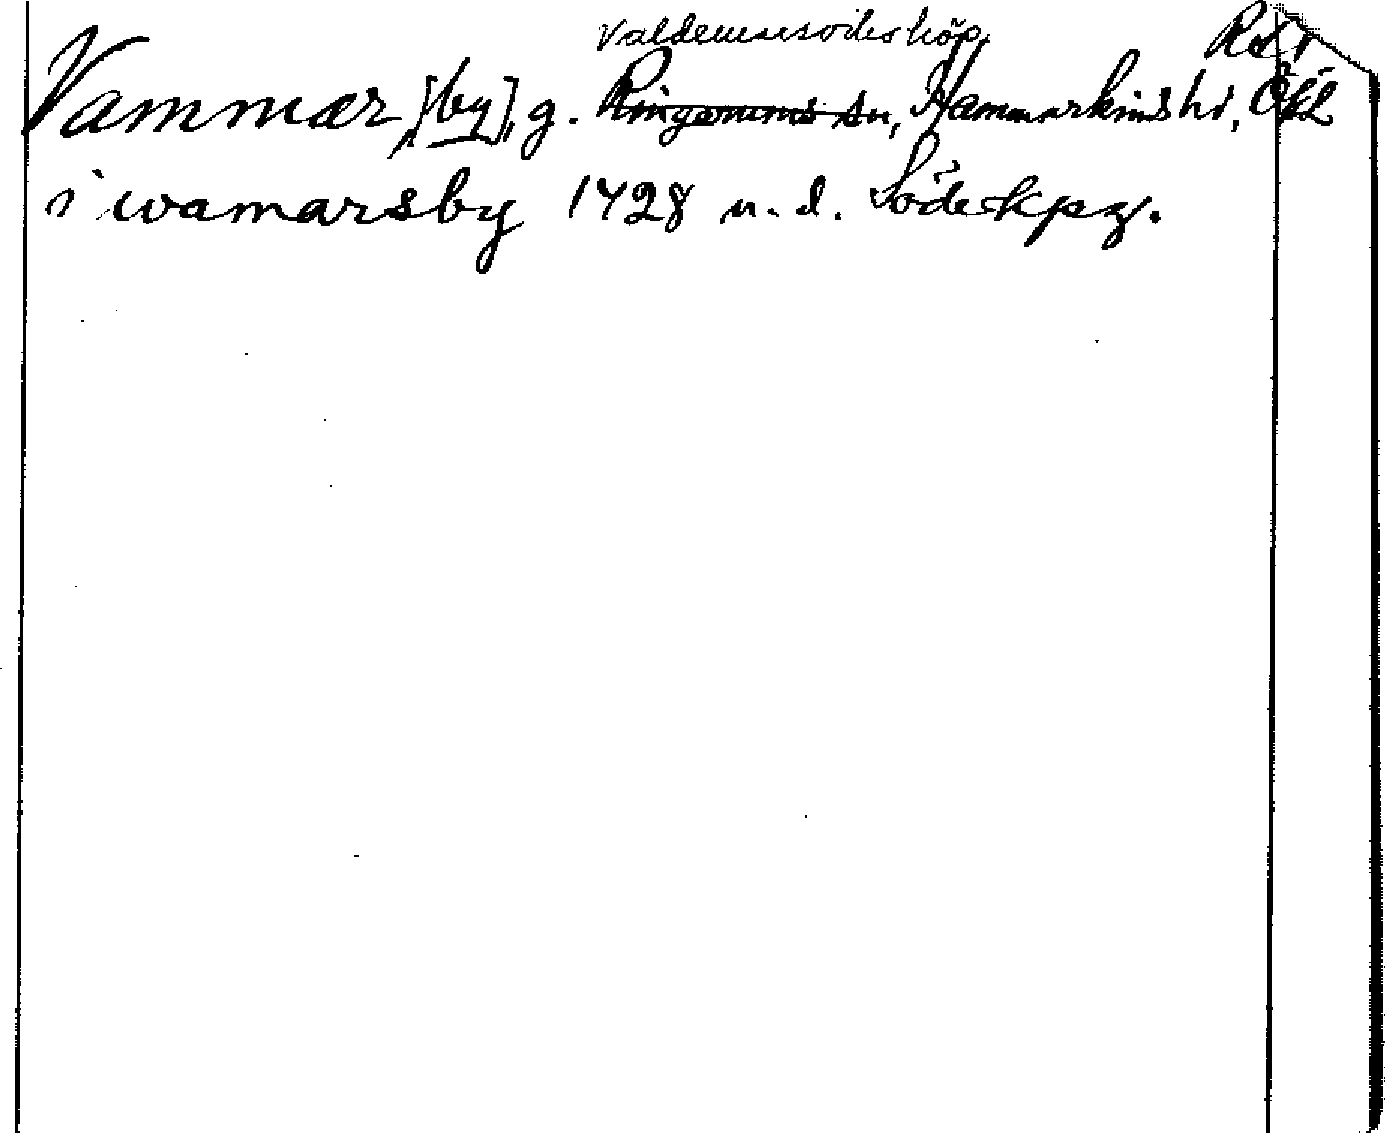 Valdemarsviks köp
Vammar, [by], g. Ringarums sn, Hammarkinds hd, Ögl
i wamarsby 1428 n. d. Söderkpg.